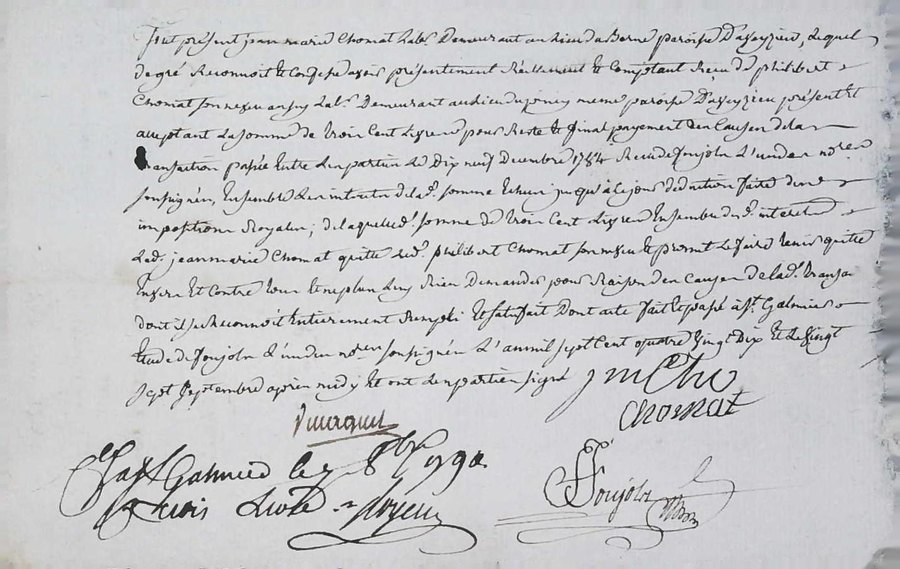 Fut présent jean marie Chomat lab.r Demeurant au lieu de Berne paroisse D'aveyzieu, lequel
de gré Reconnoit et Confesse avoir présentement Réellement et Comptant Recu de philibert
Chomat son neveu aussy lab.r Demeurant au dieu du même paroisse D'aveyzieu présent et
acceptant la somme de trois Cent livres pour Reste et final payement des Causes de la
transaction passée Entre les parties le Dix neuf Decembre 1784 Recu de foujols L'un des no.res
soussignés, Ensemble les interets de la d.e somme Echus jusqu'à ce jour deduction faite des
impositions Royales; de laquelle d.e somme de trois Cent livres Ensemble des d. interets
Led. jean marie Chomat quitte led. philibert Chomat son neveu et promet le faire tenir quitte
Envers et Contre tous et ne plus luy Rien Demander pour Raison des Causes de la d.e transa
dont il se Reconnoit Entierement Rempli et satisfait Dont acte fait et passé à S.t Galmier
Etude de foujols L'un des no.res soussignés L'an mil sept Cent quatre vingt Dix et le vingt
sept septembre après midy et ont les parties signé
j m Cho
chomat
S.t Galmier le 8bre 1790
Foujols